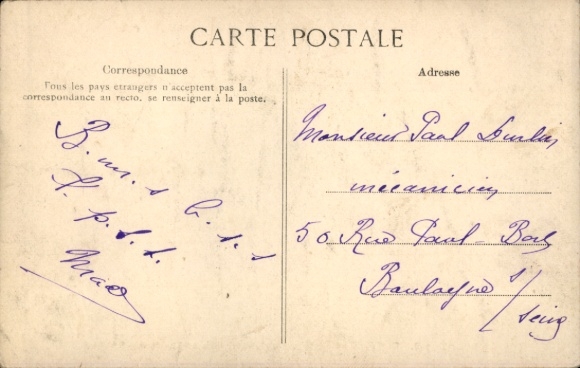 CARTE POSTALE
Correspondance
Tous les pays étrangers n'acceptent pas la
correspondance au recto, se renseigner à la poste.
B. m. s b. s. s
Adresse
Monsieur Paul
mécanicien
50 Rue Paul Bert
Boulogne s/
Seine